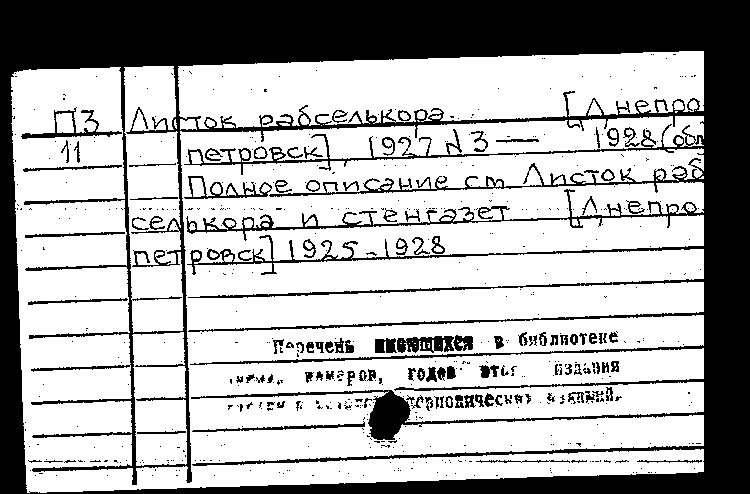 ПЗ Листок рабселькора. [Днепро
11 петровск], 1927 № 3 — 1928 (обл
Полное описание см Листок раб
селькора и стенгазет [Днепро.
петровск] 1925-1928
Перечень имеющихся в библиотеке
номеров, годов этого издания
периодических изданий.